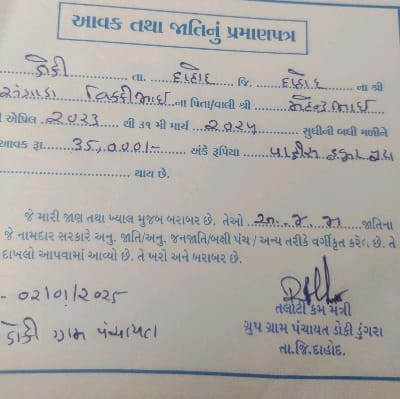 આવક તથા જાતિનું પ્રમાણપત્ર
ડોકી તા. દાહોદ જિ. દાહોદ ના શ્રી
વિક્કીભાઇ ના પિતા/વાલી શ્રી
એપ્રિલ ૨૦૨૩ થી ૩૧ મી માર્ચ ૨૦૨૫ સુધીની બધી મળીને
આવક રૂા. 35,000/- અંકે રૂપિયા
થાય છે.
જે મારી જાણ તથા ખ્યાલ મુજબ બરાબર છે. તેઓ જાતિના
જે નામદાર સરકારે અનુ. જાતિ/અનુ. જનજાતિ/બક્ષી પંચ / અન્ય તરીકે વર્ગીકૃત કરેલ છે. તે
દાખલો આપવામાં આવ્યો છે. તે ખરો અને બરાબર છે.
- 02/01/2025
ડોકી ગ્રામ પંચાયત
તલાટી કમ મંત્રી
ગ્રુપ ગ્રામ પંચાયત ડોકી ડુંગરા
તા.જિ.દાહોદ.